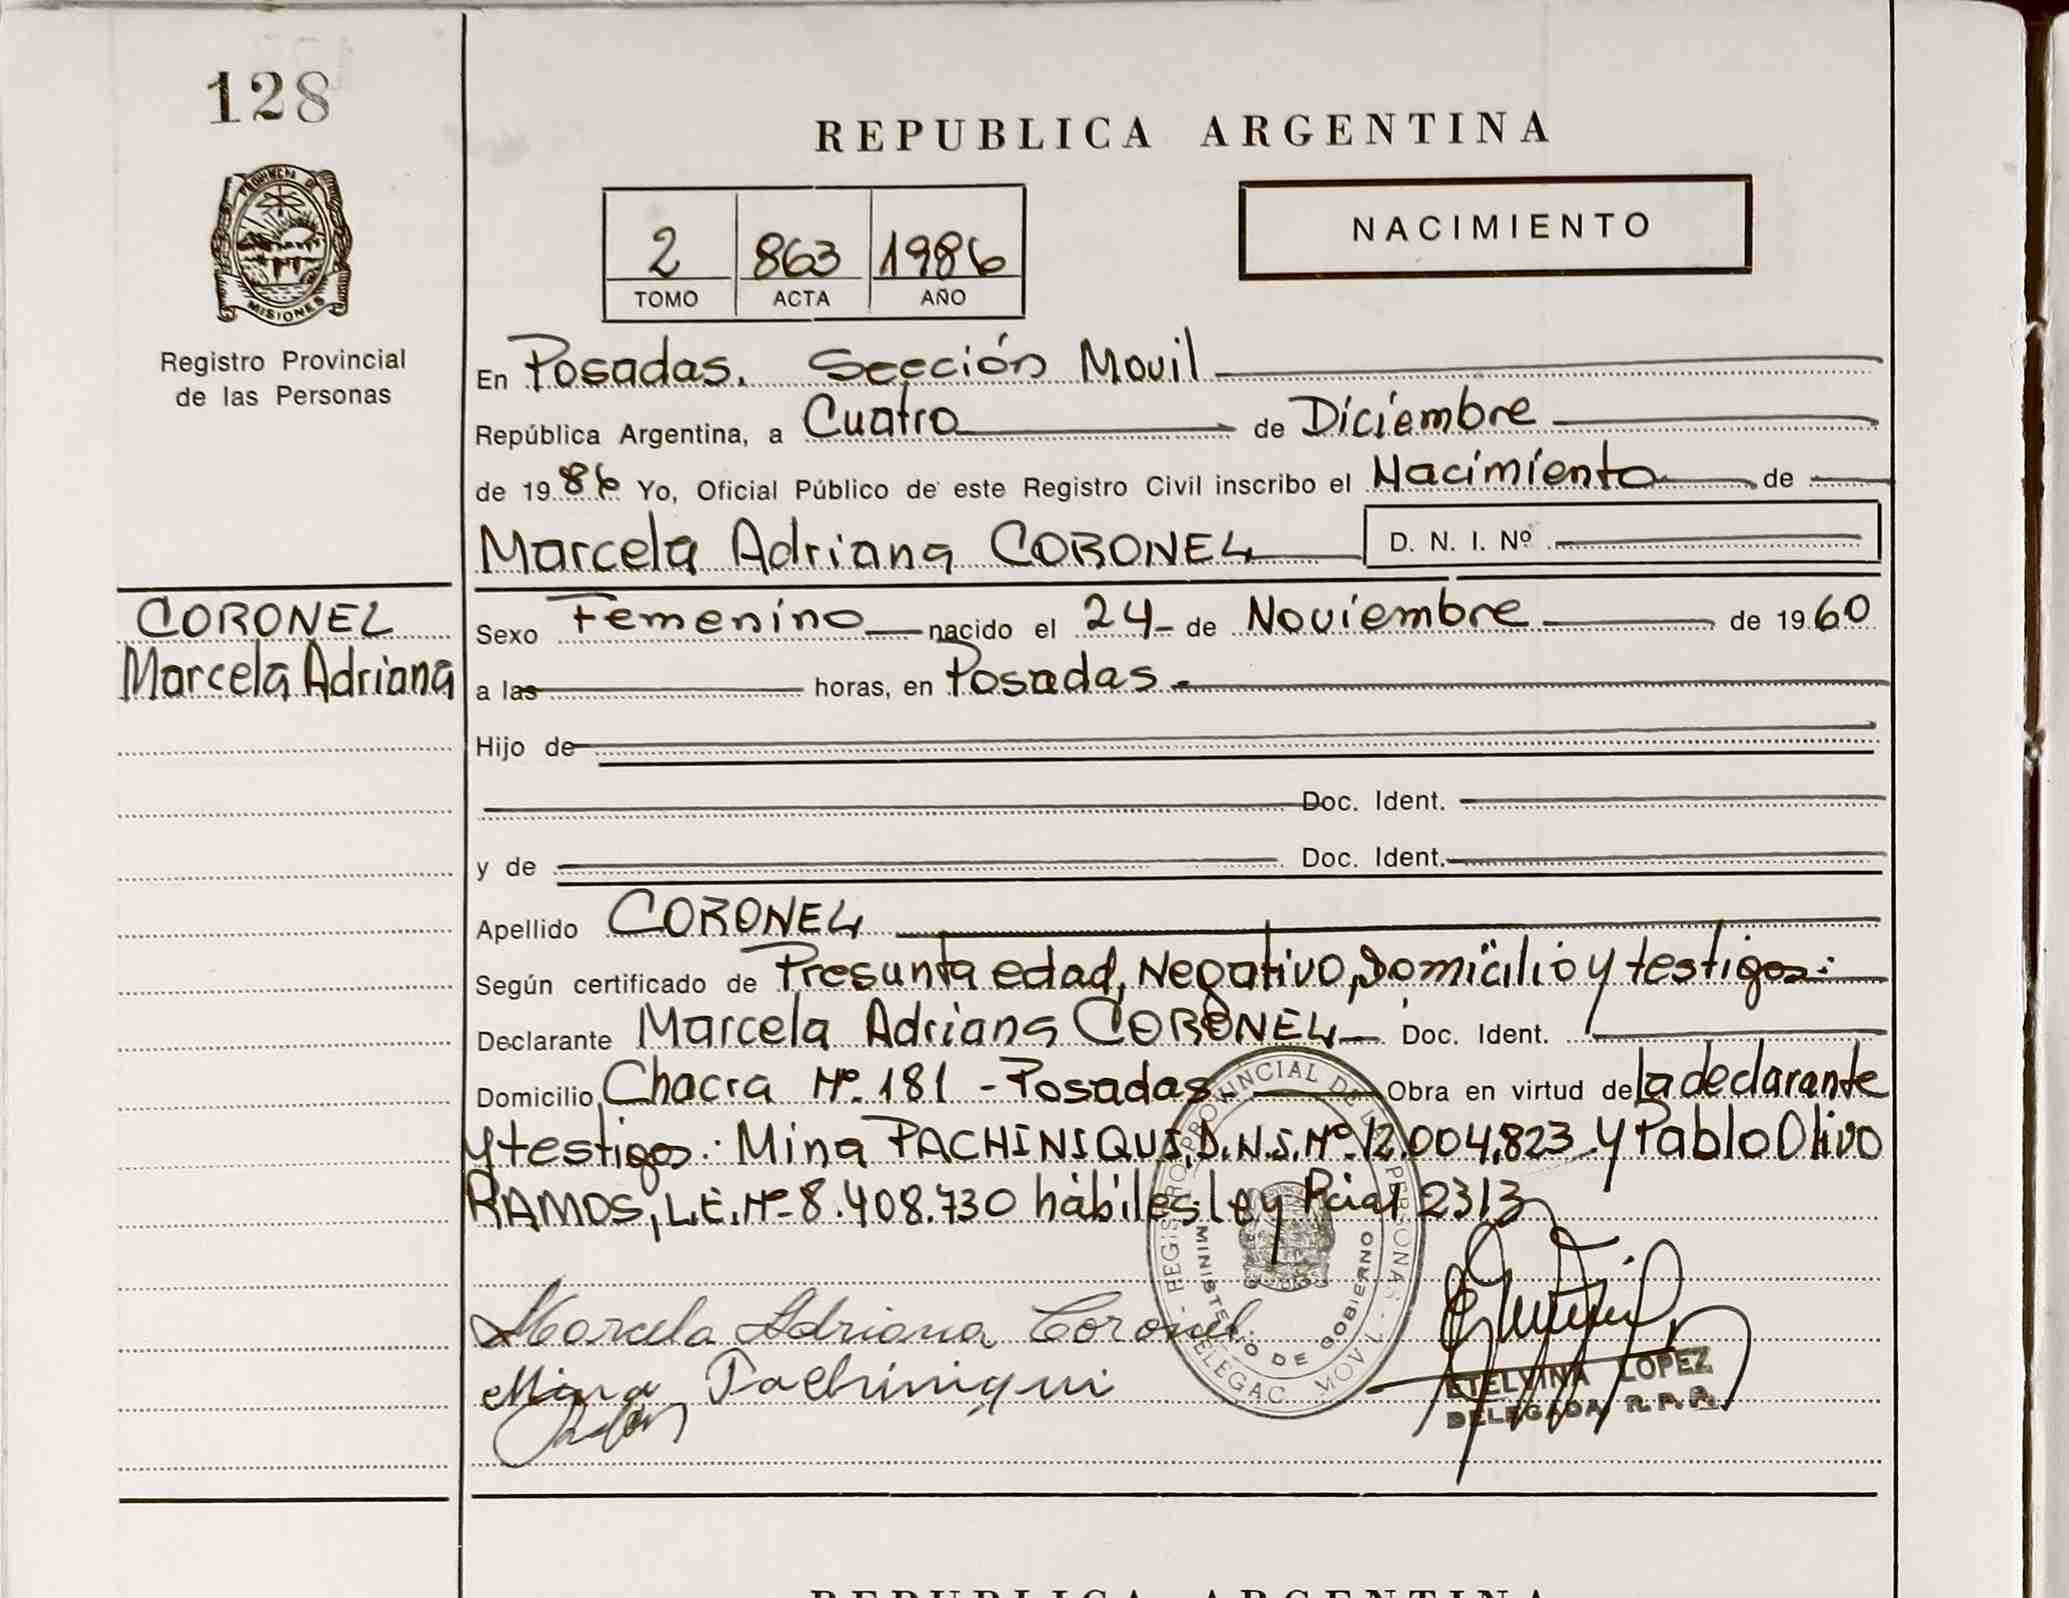 128
PROVINCIA DE
MISIONES
Registro Provincial
de las Personas
CORONEL
Marcela Adriana
REPUBLICA ARGENTINA
2 863 1986
TOMO ACTA AÑO
NACIMIENTO
En Posadas. Sección Movil
República Argentina, a Cuatro de Diciembre
de 1986 Yo, Oficial Público de este Registro Civil inscribo el Nacimiento de
Marcela Adriana CORONEL D. N. I. Nº
Sexo Femenino nacido el 24 de Noviembre de 1960
a las horas, en Posadas.
Hijo de
Doc. Ident.
y de Doc. Ident.
Apellido CORONEL
Según certificado de Presunta edad, Negativo, Domicilio y testigos:
Declarante Marcela Adriana CORONEL Doc. Ident.
Domicilio Chacra Nº 181 - Posadas - Obra en virtud de la declarante
y testigos: Mina PACHINIQUI, D.N.I. Nº 12.004.823 y Pablo Olivo
RAMOS, L.E. Nº 8.408.730 hábiles ley Pcial 2313
Marcela Adriana Coronel
Mina Pachiniqui
REGISTRO PROVINCIAL DE PERSONAS
MINISTERIO DE GOBIERNO
DELEGAC. MOVIL
ETELVINA LOPEZ
DELEGADA R.P.P.
REPUBLICA ARGENTINA